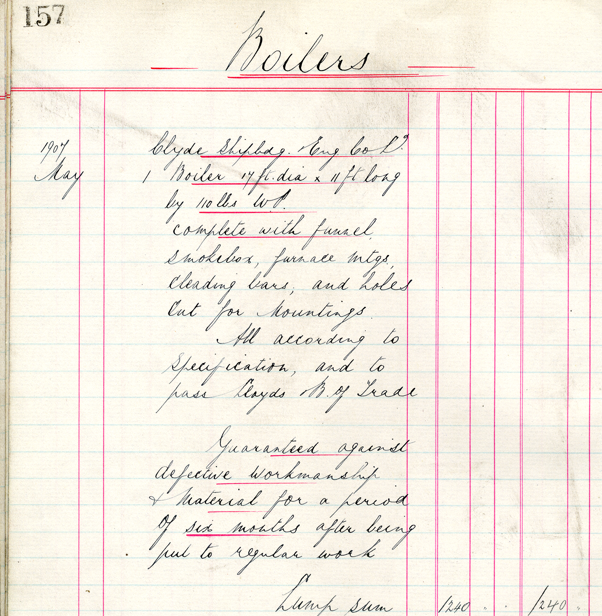 157
Boilers
1907 Clyde Shipbdg. Eng Co Ld.
May 1 Boiler 17 ft. dia x 11 ft long
by 110 lbs W.P.
complete with funnel,
smokebox, furnace mtgs,
cleading bars, and holes
cut for Mountings.
All according to
specification, and to
pass Lloyds B. of Trade
Guaranteed against
defective workmanship
& Material for a period
of six months after being
put to regular work
Lump sum 1240 . . 1240 .